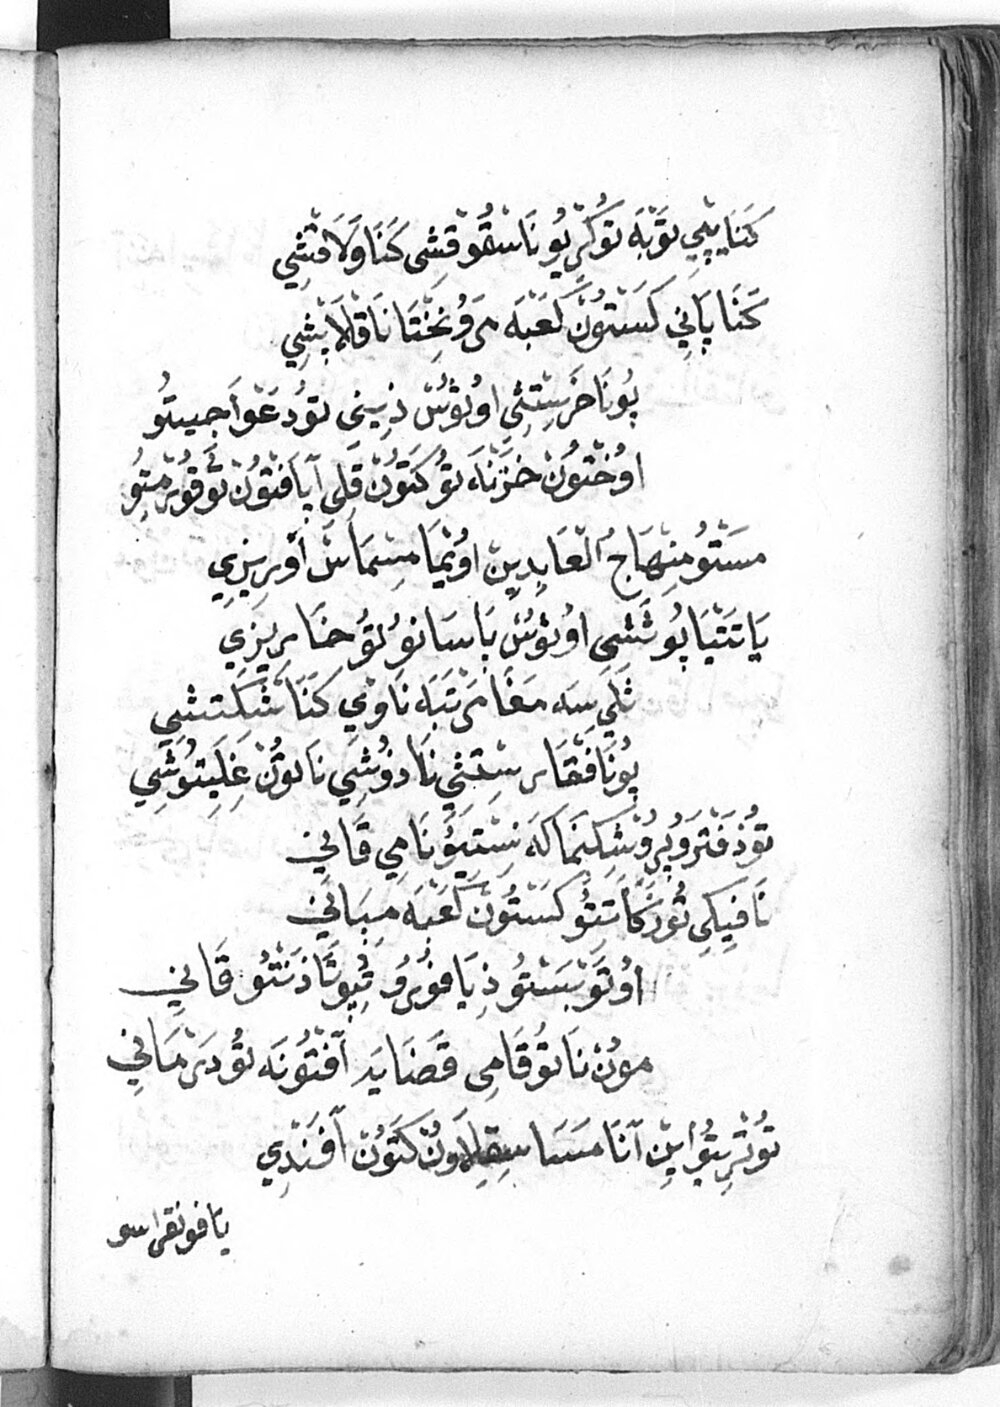 كَنَايِپِي تَوْبَه تُوكِرْيُونَاسْقُوقِشِى كَنَاوَلَاقِشِي
كَنَاپَانِي كَسْتُونْ كَعْبَه مَرْوُنْخِتَا نَاقْلَابِشِي
پُونَاخَرِسْتِثِي اوُبْوُسْ ذِينِى تُودَعْوَاجِيتُو
اوُخْتُونْ خَزْنَه تُوكَتُونْ قَلِى آپَافْتُونْ تُوقُورْمِتُو
مَسْتُو مِنْهَاجُ الْعَابِدِينْ اوُيْمَا مِسْمَاسْ آوْرِيزِي
يَاتَتْيَاپُوثَشِى اوُبْوُسْ پَاسَانُو لُو حْنَا مِرِيزِي
ثَلَى سَه مَقَامَرْتَبَه نَاوْرِي كَنَاشَكِتِشِي
پُونَافُقَارِسْتِثِي نَادُوشِي نَالُونْ غِلَيْتُوشِي
تُوذَفْتَرْوُبْرُوشِكِنَمَاكَه نِسْتِيُونَامِى قَانِي
نَافِيكِي تُورْكَاسْتُو كَسْتُونْ كَعْبَه مِبَانِي
اوُتَوْبَسْتُو ذِيَامُورُو قُيُوتَاذَنْتُو قَانِي
مُونْ نَاتُوقَامِى قَضَايَه آفْتُونَه تُودَرْمَانِي
تُوثَرِيتُو ايِنْ آنَامَسَاسِقِلَاوُنْ كَتُونْ آفَنْدِي
يَافونقراسو